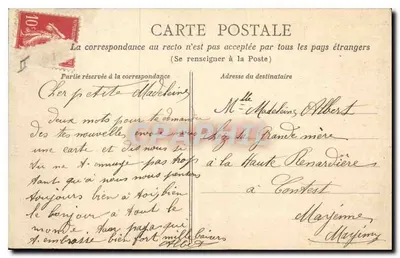 CARTE POSTALE
La correspondance au recto n'est pas acceptée par tous les pays étrangers
(Se renseigner à la Poste)
Partie réservée à la correspondance
Adresse du destinataire
10
Cher petite Madeleine
deux mots pour te demander
des tes nouvelles
une carte et des nous
tu ne t ennuye pas trop
tant qu'a nous nous pensons
toujours bien a toi bien
le bonjour a tout le
monde papa qui
t embrasse bien fort mille baisers
Mlle Madeleine Albert
chez sa grande mère
à la Haute Renardière
à Contest
Mayenne
Mayenne